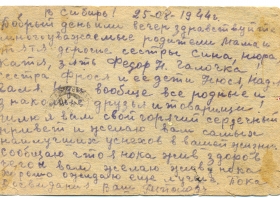 В Сибирь! 25-08-1944г.
Добрый день или вечер здравствуйте
многоуважаемые родители Мама и
тятя дорогие сестры Сина, Нюра
Катя зять Федор Н. Галочка
сестра Фрося и ее дети Нюся Надя
Валя вообще все родные и
знакомые друзья и товарищи!
Шлю я вам свой горячий сердечный
привет и желаю вам самых
наилучших успехов в вашей жизни.
Сообщаю что я пока жив здоров
чего и вам желаю живу пока
хорошо ожидаю еще лучше пока
досвидания Ваш